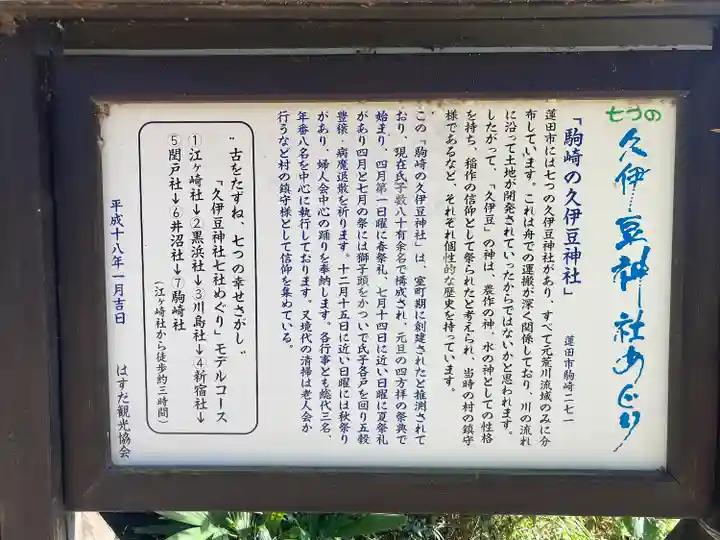 七つの
久伊豆神社めぐり
「駒崎の久伊豆神社」
蓮田市駒崎二七一
蓮田市には七つの久伊豆神社があり、すべて元荒川流域のみに分
布しています。これは舟での運搬が深く関係しており、川の流れ
に沿って土地が開発されていったからではないかと思われます。
したがって、「久伊豆」の神は、農作の神、水の神としての性格
を持ち、稲作の信仰として祭られたと考えられ、当時の村の鎮守
様であるなど、それぞれ個性的な歴史を持っています。
この「駒崎の久伊豆神社」は、室町期に創建されたと推測されて
おり、現在氏子数八十有余名で構成され、元旦の四方拝の祭典で
始まり、四月第一日曜に春祭礼、七月十四日に近い日曜に夏祭礼
があり四月と七月の祭には獅子頭をかついで氏子各戸を回り五穀
豊穣・病魔退散を祈ります。十二月十五日に近い日曜には秋祭り
があり、婦人会中心の踊りを奉納します。各行事とも総代三名、
年番八名を中心に執行しております。又境代の清掃は老人会が
行うなど村の鎮守様として信仰を集めている。
"古をたずね、七つの幸せさがし"
「久伊豆神社七社めぐり」モデルコース
①江ヶ崎社→②黒浜社→③川島社→④新宿社→
⑤閏戸社→⑥井沼社→⑦駒崎社
(江ヶ崎社から徒歩約三時間)
平成十八年一月吉日
はすだ観光協会